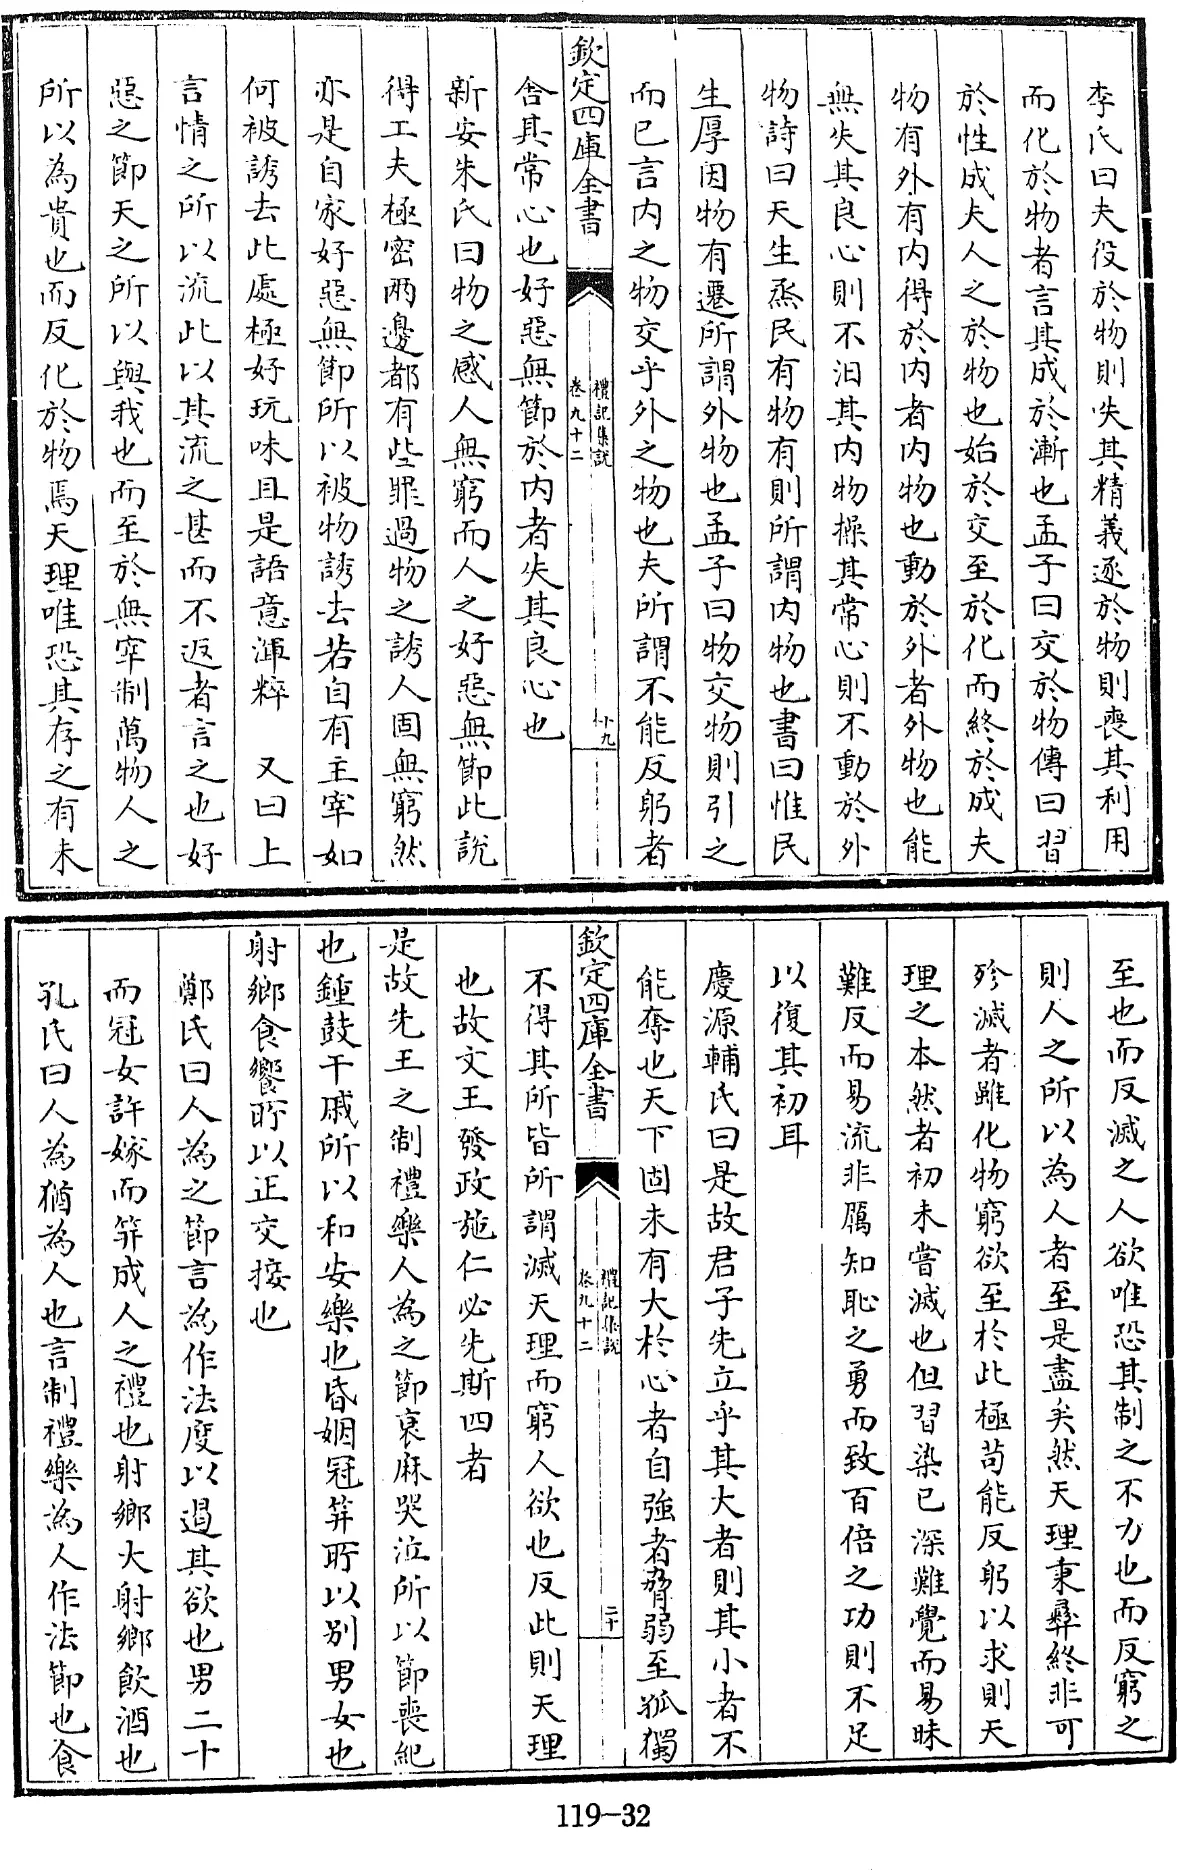 李氏曰夫役於物則失其精義逐於物則喪其利用
而化於物者言其成於漸也孟子曰交於物傳曰習
於性成夫人之於物也始於交至於化而終於成夫
物有外有内得於内者内物也動於外者外物也能
無失其良心則不汨其内物操其常心則不動於外
物詩曰天生烝民有物有則所謂内物也書曰惟民
生厚因物有遷所謂外物也孟子曰物交物則引之
而已言内之物交乎外之物也夫所謂不能反躬者
欽定四庫全書
禮記集説
卷九十二
十九
舍其常心也好惡無節於内者失其良心也
新安朱氏曰物之感人無窮而人之好惡無節此說
得工夫極密兩邊都有些罪過物之誘人固無窮然
亦是自家好惡無節所以被物誘去若自有主宰如
何被誘去此處極好玩味且是語意渾粹 又曰上
言情之所以流此以其流之甚而不返者言之也好
惡之節天之所以與我也而至於無宰制萬物人之
所以為貴也而反化於物焉天理唯恐其存之有未
至也而反滅之人欲唯恐其制之不力也而反窮之
則人之所以為人者至是盡矣然天理秉彝終非可
殄滅者雖化物窮欲至於此極苟能反躬以求則天
理之本然者初未嘗滅也但習染已深難覺而易昧
難反而易流非厲知恥之勇而致百倍之功則不足
以復其初耳
慶源輔氏曰是故君子先立乎其大者則其小者不
能奪也天下固未有大於心者自強者脅弱至狐獨
欽定四庫全書
禮記集說
卷九十二
二十
不得其所皆所謂滅天理而窮人欲也反此則天理
也故文王發政施仁必先斯四者
是故先王之制禮樂人為之節衰麻哭泣所以節喪紀
也鍾鼓干戚所以和安樂也昏姻冠笄所以别男女也
射鄉食饗所以正交接也
鄭氏曰人為之節言為作法度以遏其欲也男二十
而冠女許嫁而笄成人之禮也射鄉大射鄉飲酒也
孔氏曰人為猶為人也言制禮樂為人作法節也食
119-32